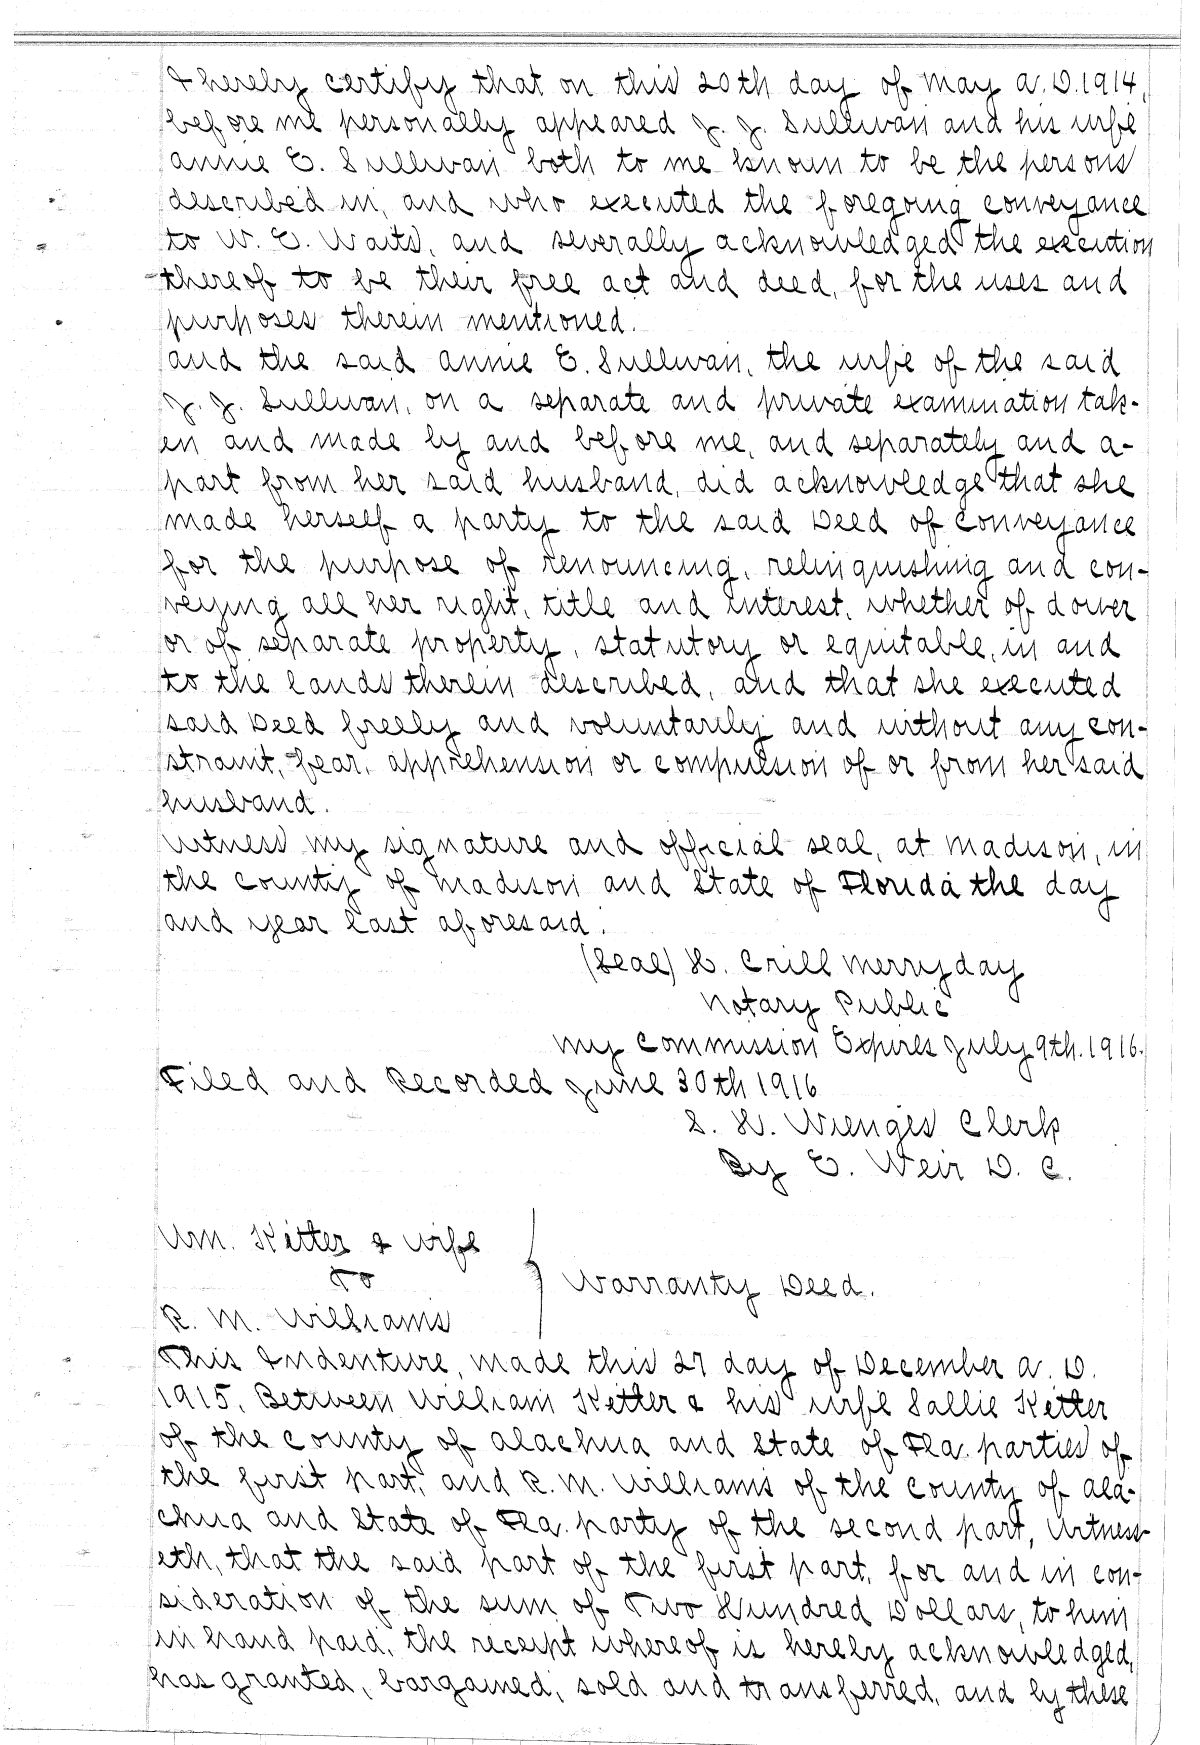 I hereby certify that on this 20th day of May A.D. 1914,
before me personally appeared J. J. Sullivan and his wife
Annie E. Sullivan both to me known to be the persons
described in, and who executed the foregoing conveyance
to W. E. Waits, and severally acknowledged the execution
thereof to be their free act and deed, for the uses and
purposes therein mentioned.
And the said Annie E. Sullivan, the wife of the said
J. J. Sullivan, on a separate and private examination tak-
en and made by and before me, and separately and a-
part from her said husband, did acknowledge that she
made herself a party to the said Deed of Conveyance
for the purpose of renouncing, relinquishing and con-
veying all her right, title and interest, whether of dower
or of separate property, statutory or equitable, in and
to the lands therein described, and that she executed
said Deed freely and voluntarily and without any con-
straint, fear, apprehension or compulsion of or from her said
husband.
Witness my signature and official seal, at Madison, in
the County of Madison and State of Florida the day
and year last aforesaid.
(Seal) H. Crill Merryday
Notary Public
My Commission Expires July 9th. 1916.
Filed and Recorded June 30th 1916
S. H. Wienges Clerk
By E. Weir D. C.
Wm. Ketter & wife
To
Warranty Deed.
R. M. Williams
This Indenture, made this 27 day of December A. D.
1915, Between William Ketter & his wife Sallie Ketter
of the County of Alachua and State of Fla. parties of
the first part, and R. M. Williams of the County of Ala-
chua and State of Fla. party of the second part, Witness-
eth, that the said part of the first part, for and in con-
sideration of the sum of Two Hundred Dollars, to him
in hand paid, the receipt whereof is hereby acknowledged,
has granted, bargained, sold and transferred, and by these